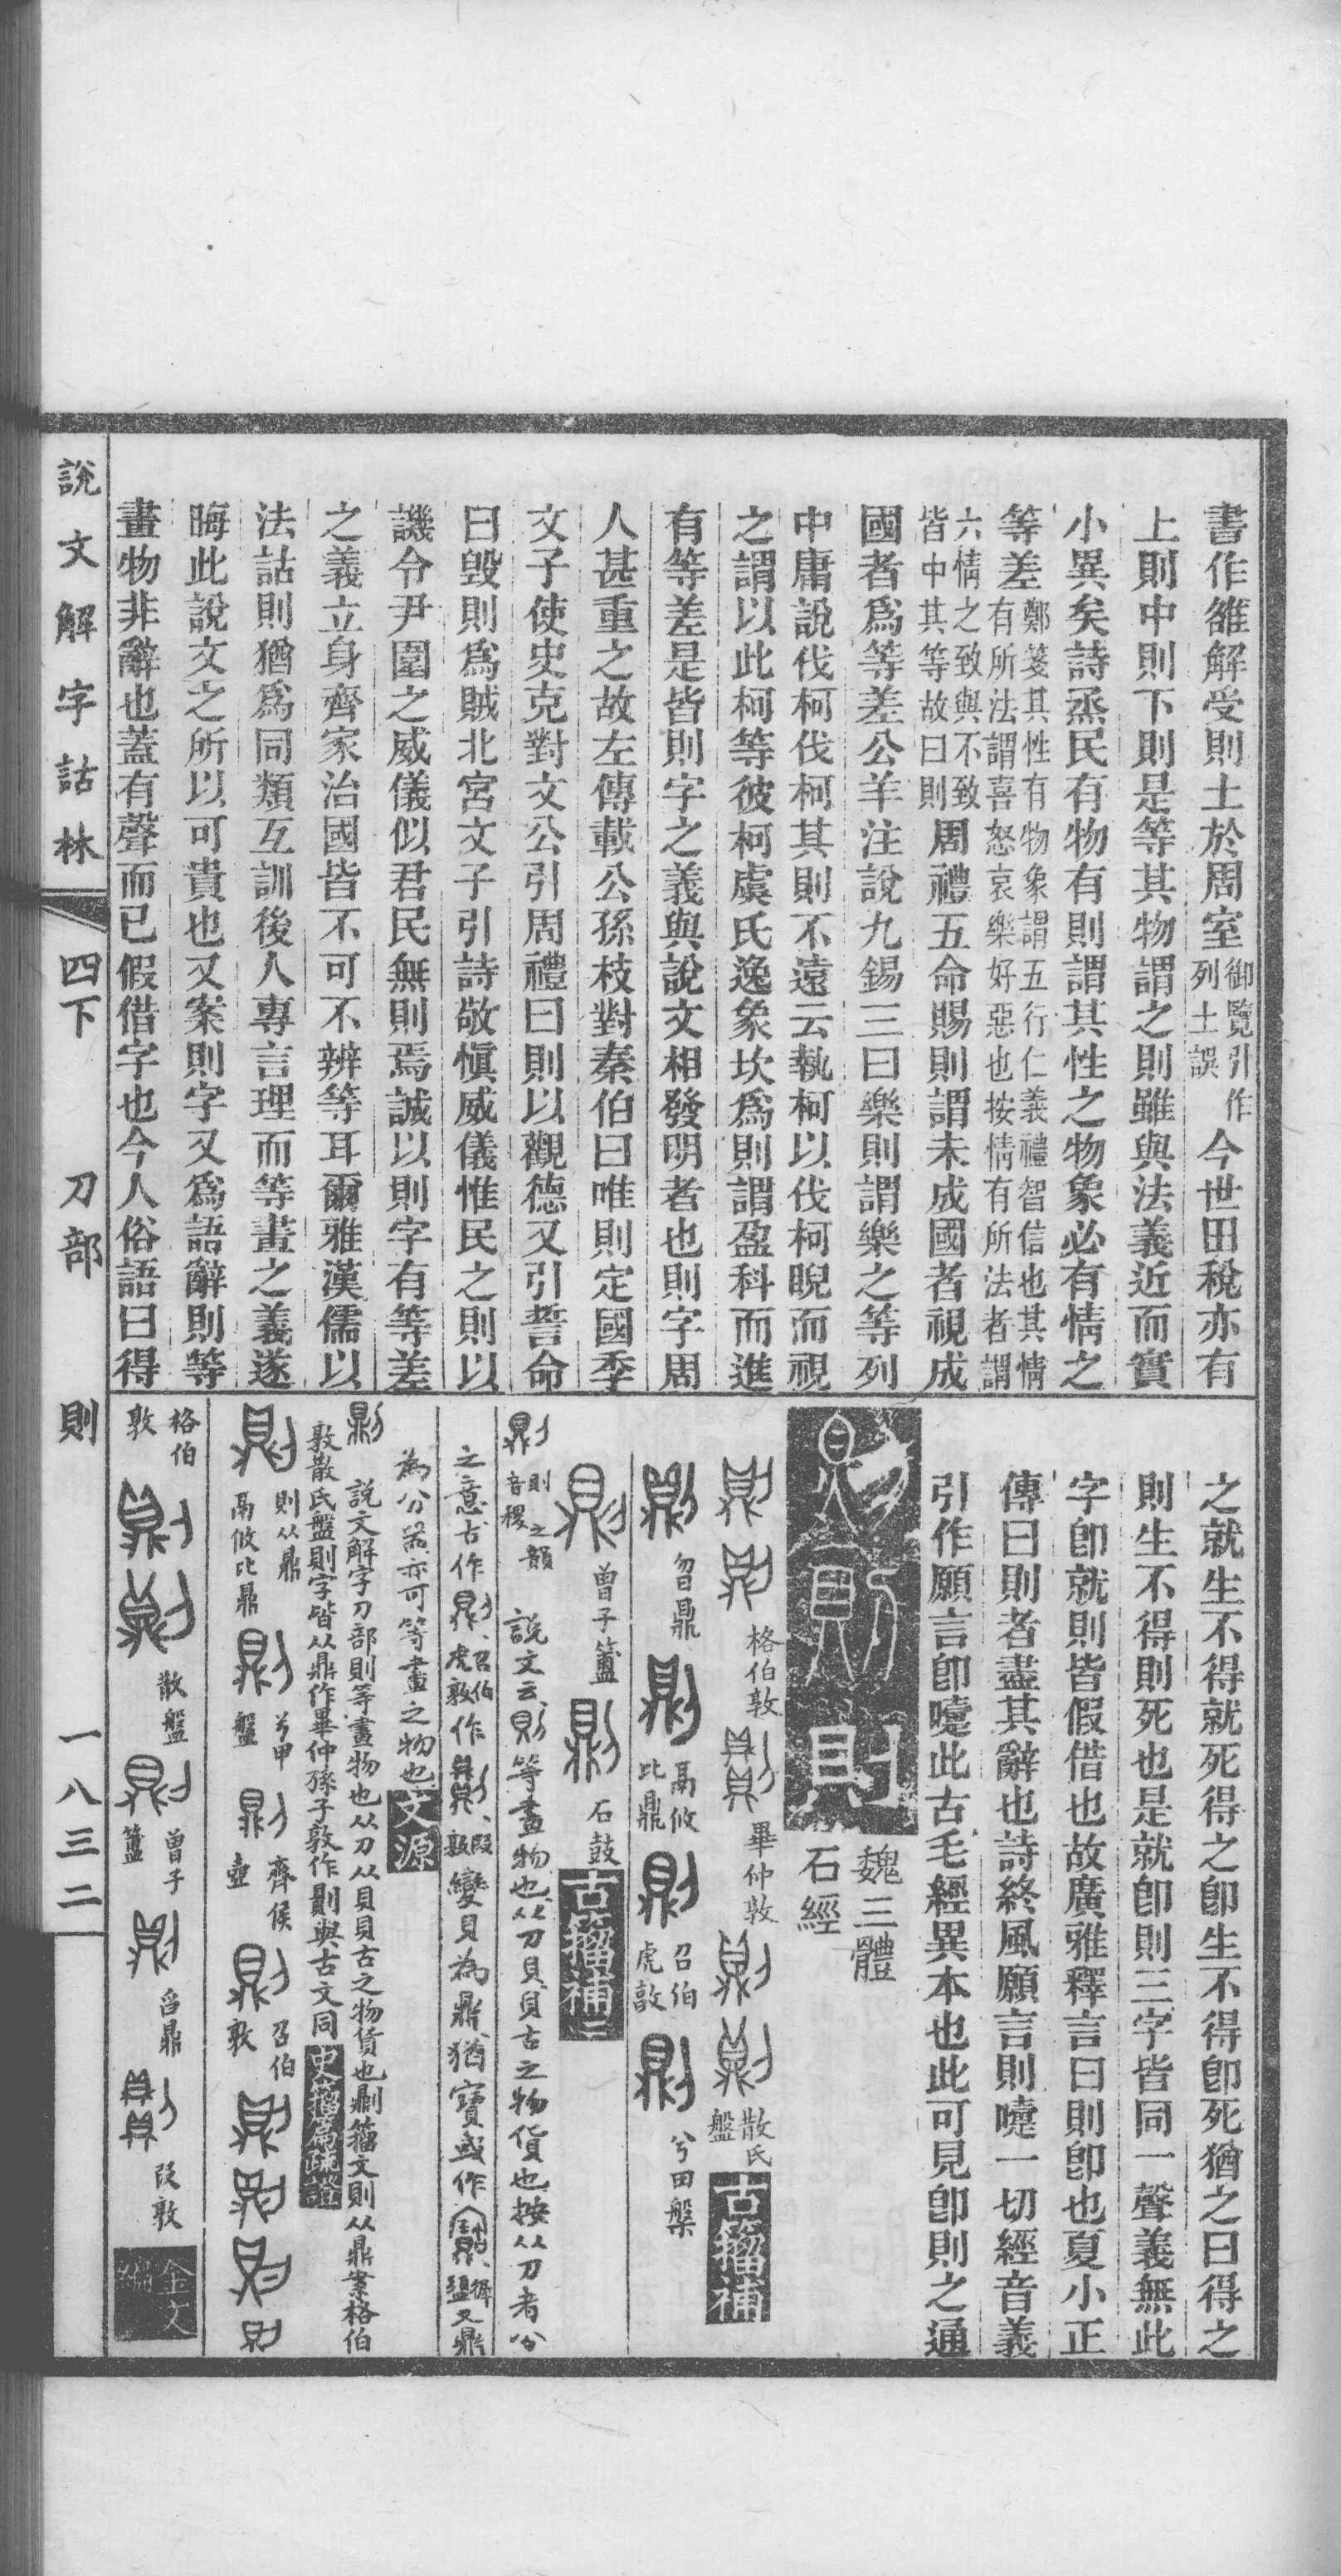 書作雒解受則土於周室御覽引作列土誤今世田稅亦有
上則中則下則是等其物謂之則雖與法義近而實
小異矣詩烝民有物有則謂其性之物象必有情之
等差鄭箋其性有物象謂五行仁義禮智信也其情有所法謂喜怒哀樂好惡也按情有所法者謂
六情之致與不致皆中其等故曰則周禮五命賜則謂未成國者視成
國者爲等差公羊注說九錫三曰樂則謂樂之等列
中庸說伐柯伐柯其則不遠云執柯以伐柯睨而視
之謂以此柯等彼柯虞氏逸象坎爲則謂盈科而進
有等差是皆則字之義與說文相發明者也則字周
人甚重之故左傳載公孫枝對秦伯曰唯則定國季
文子使史克對文公引周禮曰則以觀德又引誓命
曰毀則爲賊北宮文子引詩敬愼威儀惟民之則以
譏令尹圍之威儀似君民無則焉誠以則字有等差
之義立身齊家治國皆不可不辨等耳爾雅漢儒以
法詁則猶爲同類互訓後人專言理而等畫之義遂
晦此說文之所以可貴也又案則字又爲語辭則等
畫物非辭也蓋有聲而已假借字也今人俗語曰得
之就生不得就死得之卽生不得卽死猶之曰得之
則生不得則死也是就卽則三字皆同一聲義無此
字卽就則皆假借也故廣雅釋言曰則卽也夏小正
傳曰則者盡其辭也詩終風願言則嚏一切經音義
引作願言卽嚏此古毛經異本也此可見卽則之通
則 魏三體石經
格伯敦 畢仲敦 散氏盤 古籀補
曶鼎 鬲攸比鼎 召伯虎敦 兮田槃
曾子簠 石鼓 古籀補
則 則之韻音稷 說文云則等畫物也从刀貝貝古之物貨也按从刀者分
之意古作 召伯虎敦作 段敦變貝為鼎猶寶或作 又鼎
為分器亦可等畫之物也 文源
說文解字刀部則等畫物也从刀从貝貝古之物貨也鼎籀文則从鼎案格伯
敦散氏盤則字皆从鼎作畢仲孫子敦作與古文同 史籀篇疏證
則从鼎 鬲攸比鼎 兮甲盤 齊侯壺 召伯敦
格伯敦 散盤 曾子簠 曶鼎 段敦 金文編
說文解字詁林 四下 刀部 則 一八三二